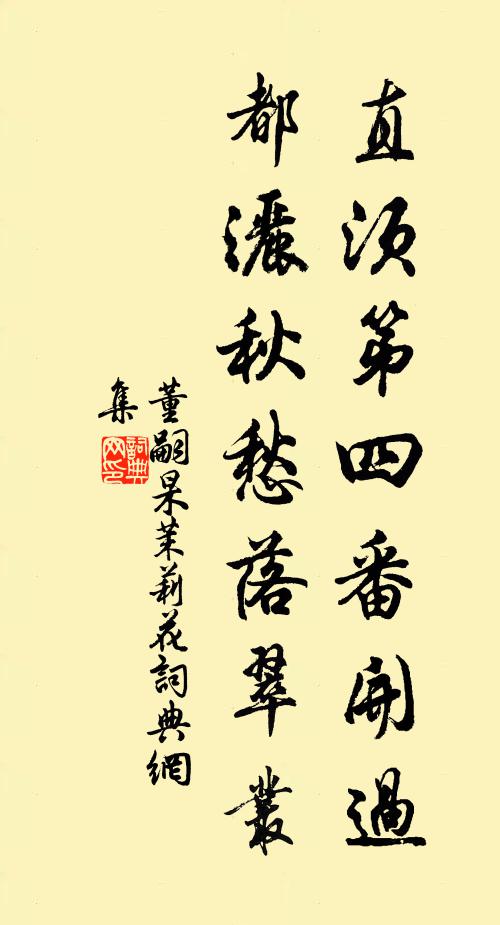 直須第四番開過
都灑秋愁落翠叢
董嗣杲茉莉花詞典網
集
詞典网印